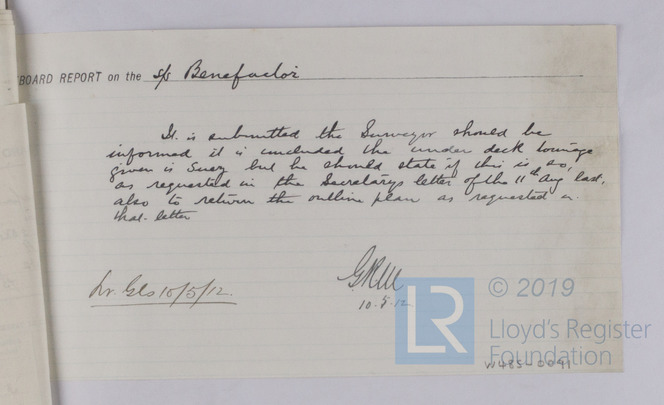 BOARD REPORT on the s/s Benefactor
It is submitted the Surveyor should be
informed it is concluded the under deck tonnage
given is Suez but he should state if this is so,
as requested in the Secretary's letter of the 11th Aug last,
also to return the outline plan as requested in
that letter
10.5.12
Lr. Gls 10/5/12.
LR © 2019
Lloyd's Register
Foundation
W485-0091